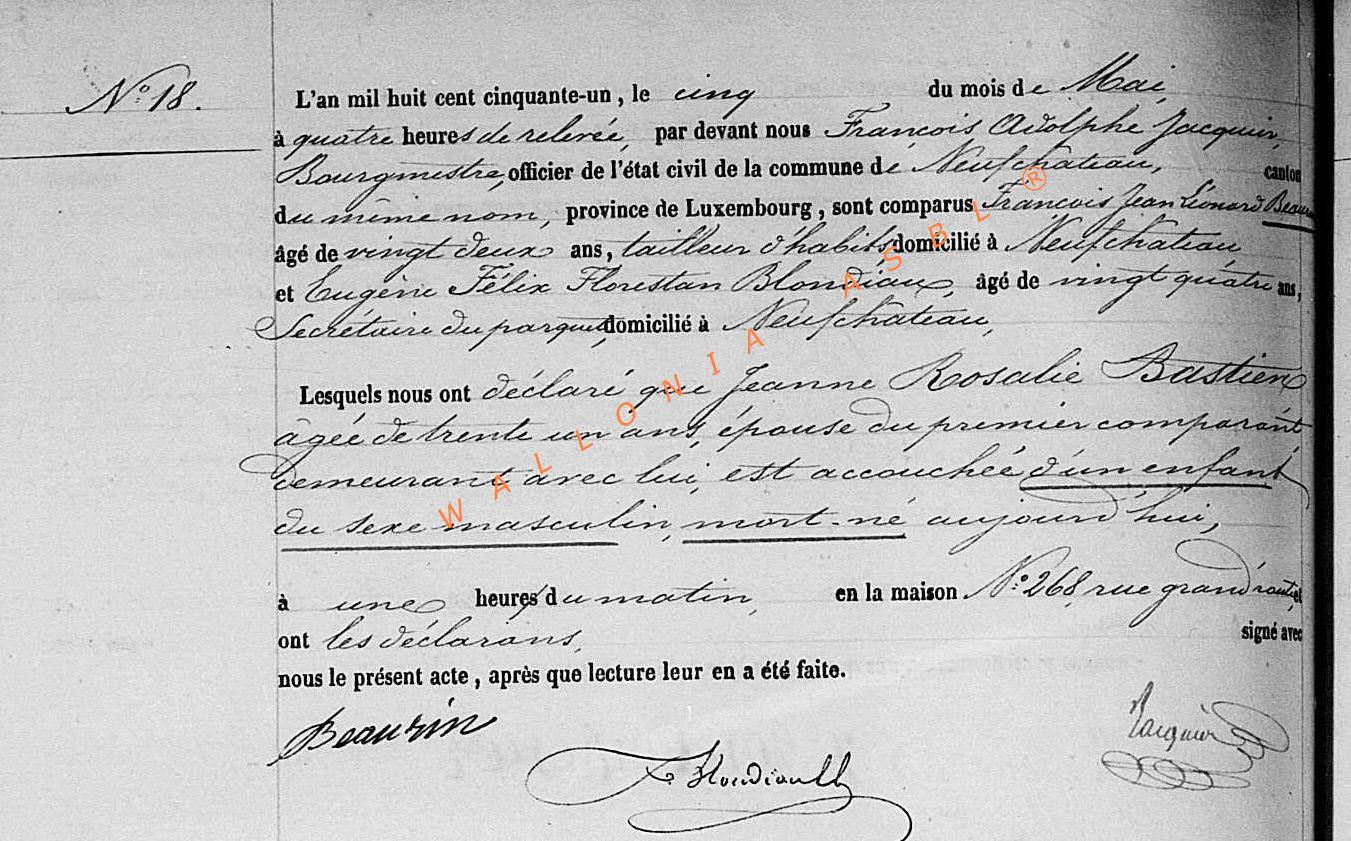 N.º 18.
L'an mil huit cent cinquante-un, le cinq du mois de Mai,
à quatre heures de relevée, par devant nous François Adolphe Jacquier,
Bourgmestre, officier de l'état civil de la commune de Neufchateau, canton
du même nom, province de Luxembourg, sont comparus François Jean Léonard
âgé de vingt deux ans, tailleur d'habits, domicilié à Neufchateau,
et Eugène Félix Florestan Blondiaux, âgé de vingt quatre ans,
Secrétaire du parquet, domicilié à Neufchateau,
Lesquels nous ont déclaré que Jeanne Rosalie Bastien
âgée de trente un ans, épouse du premier comparant,
demeurant avec lui, est accouchée d'un enfant
du sexe masculin, mort-né aujourd'hui,
à une heures du matin, en la maison N.º 268, rue grand'route, et
ont les déclarans, signé avec
nous le présent acte, après que lecture leur en a été faite.
Beaurin
Jacquier
WALLONIA ASBL ®